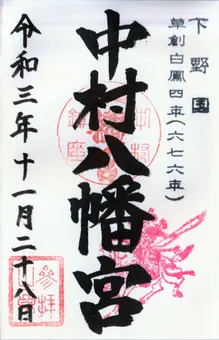 下野國
草創白鳳四年(六七六年)
中村八幡宮
令和三年十一月二十八日